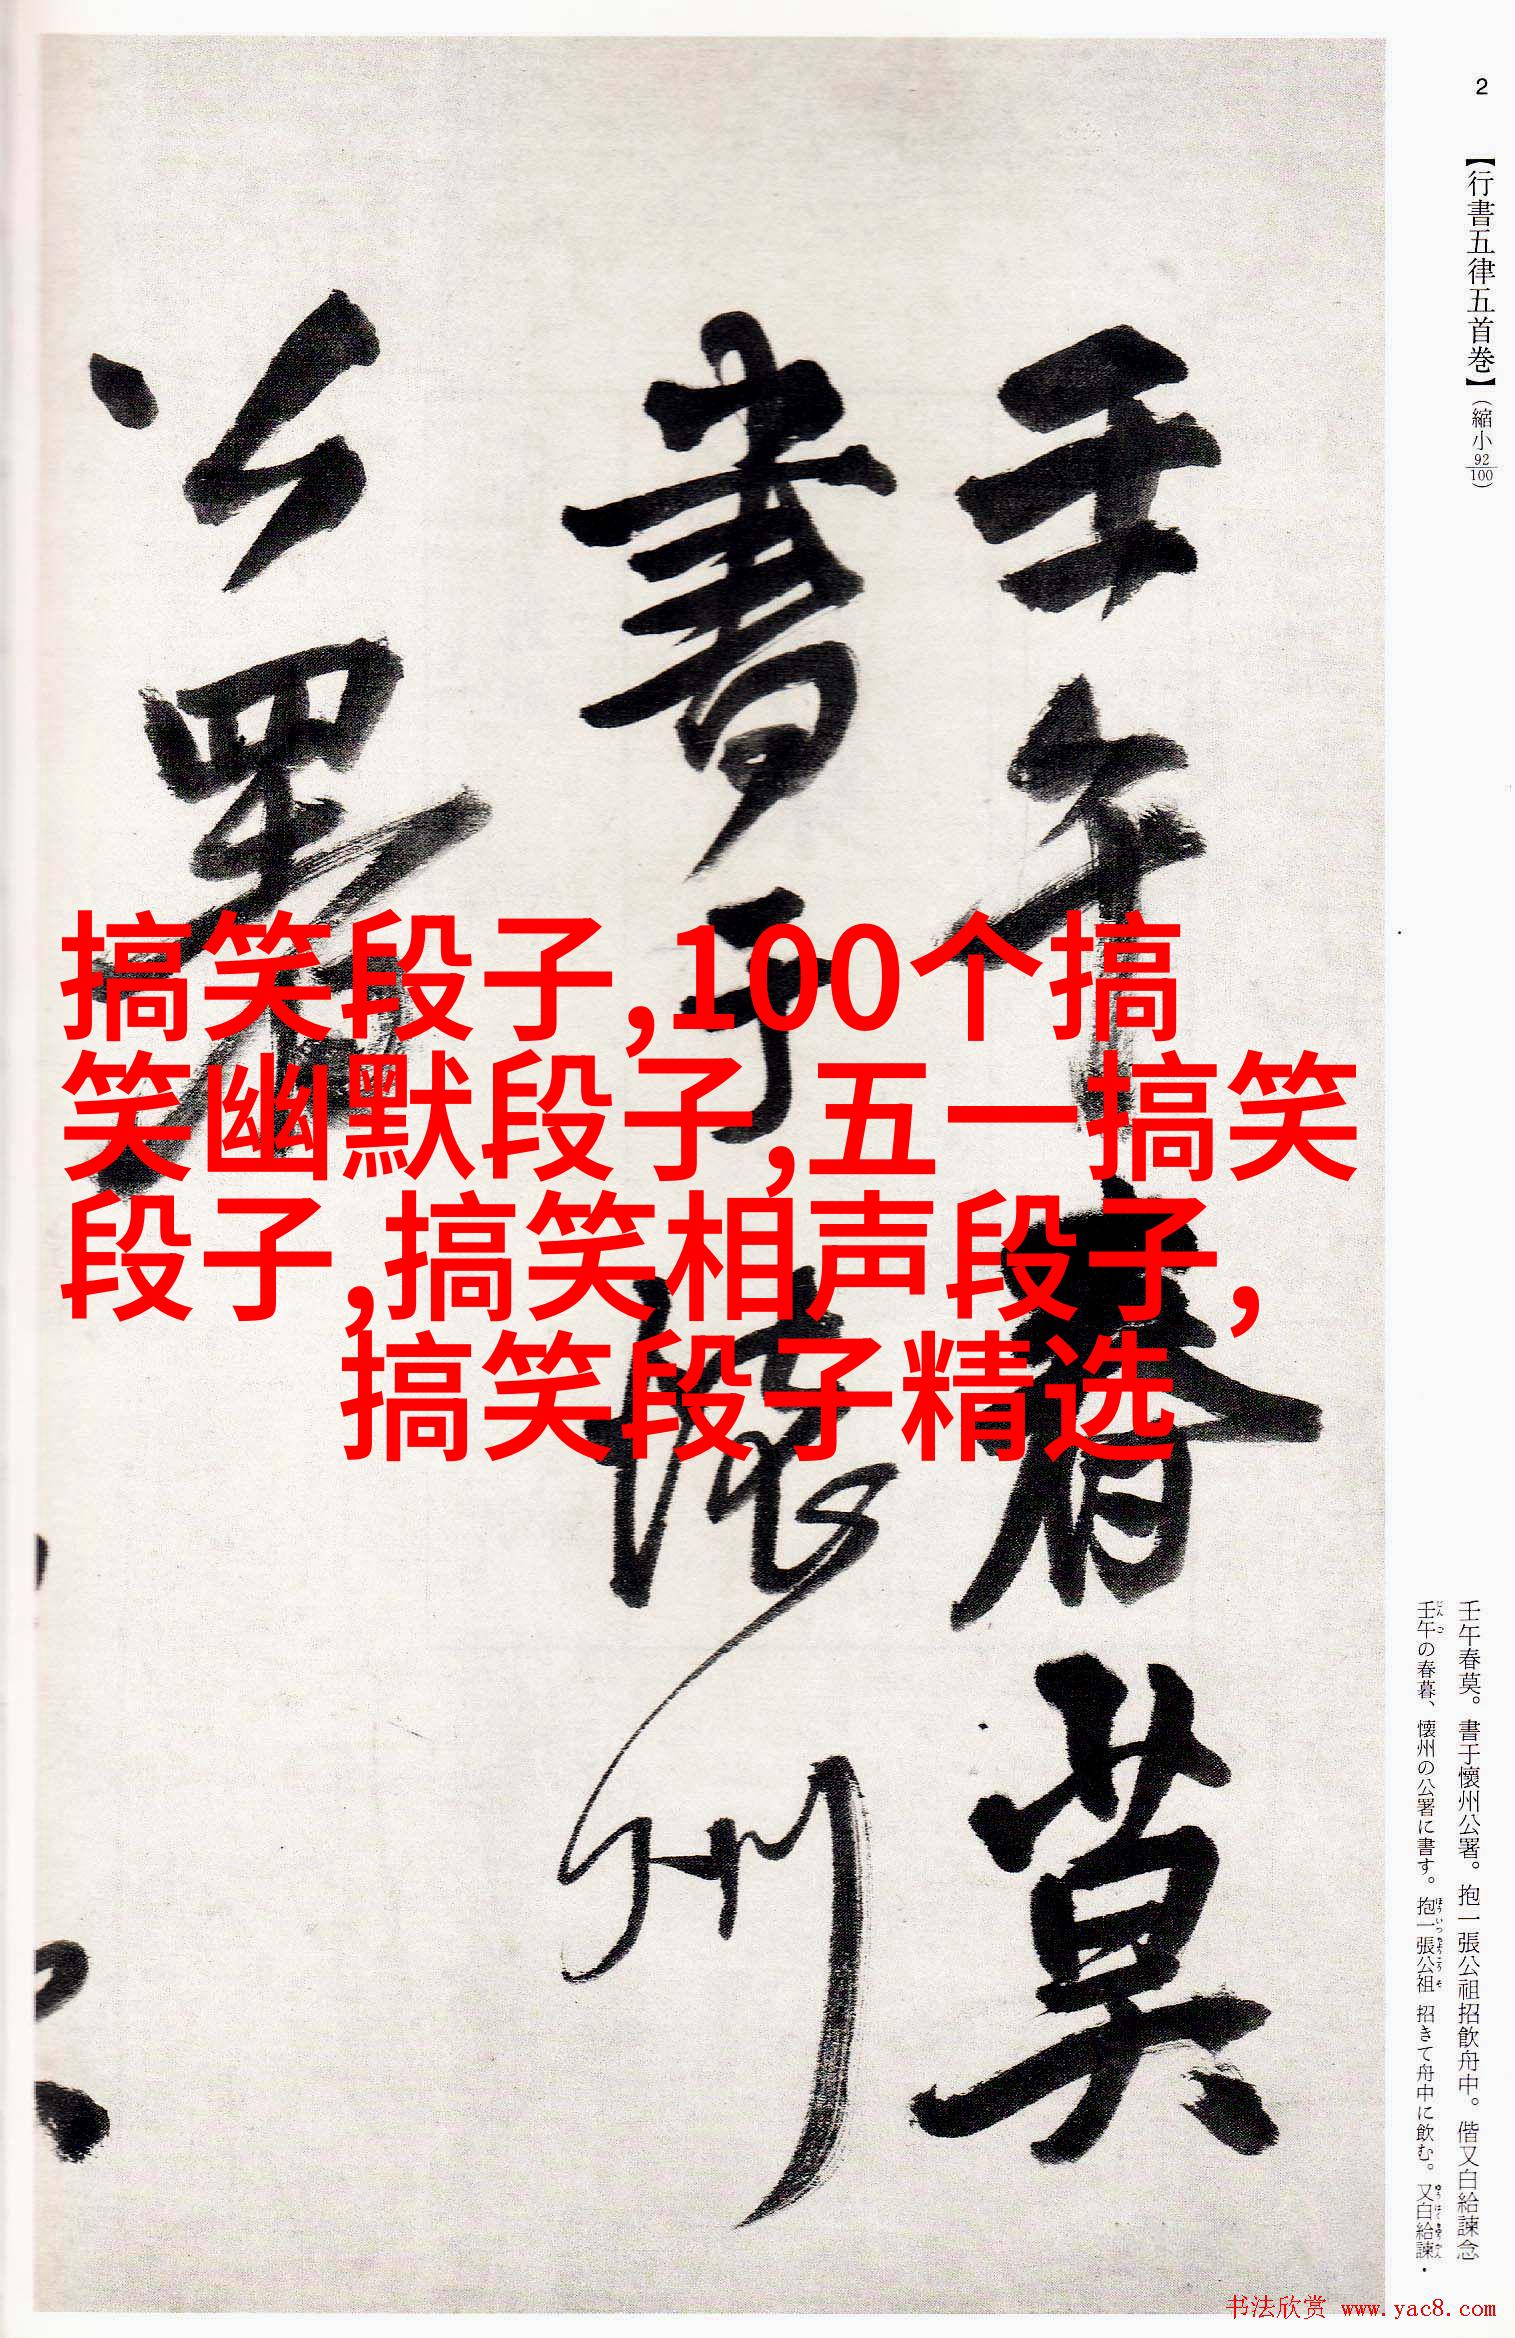 2
【行書五律五首巻】（縮小92/100）
壬午春莫
書于懷州
公署
搞笑段子,100个搞
笑幽默段子,五一搞笑
段子,搞笑相声段子,
搞笑段子精选
壬午春莫。書于懷州公署。抱一張公祖招飲舟中。偕又白給諫念
壬午の春暮、懐州の公署に書す。抱一張公祖 招きて舟中に飲む。又白給諫・
书法欣赏 www.yac8.com